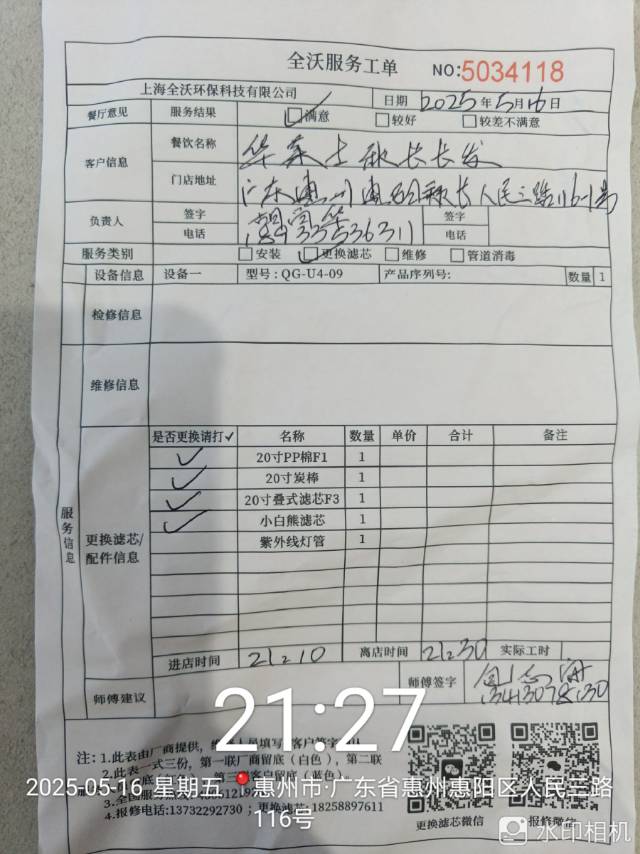 全沃服务工单 NO:5034118
上海全沃环保科技有限公司 日期 2025年5月16日
餐厅意见 服务结果 满意 较好 较差不满意
客户信息 餐饮名称 华莱士
门店地址 广东惠州惠 人民三路116-1号
负责人 签字 签字
电话 电话
服务类别 安装 更换滤芯 维修 管道消毒
设备信息 设备一 型号:QG-U4-09 产品序列号: 数量 1
检修信息
维修信息
服务信息
更换滤芯/配件信息
是否更换请打✓ 名称 数量 单价 合计 备注
✓ 20寸PP棉F1 1
✓ 20寸炭棒 1
✓ 20寸叠式滤芯F3 1
✓ 小白熊滤芯 1
紫外线灯管 1
进店时间 21:10 离店时间 21:30 实际工时
师傅建议 师傅签字
21:27
注:1.此表由厂商提供,
2.此表一式三份,第一联厂商留底(白色),第二联
客户留底(蓝色)。
2025-05-16 星期五 惠州市·广东省惠州惠阳区人民三路116号
4.报修电话:13732292730;更换滤芯:18258897611
更换滤芯微信 报修微信
水印相机